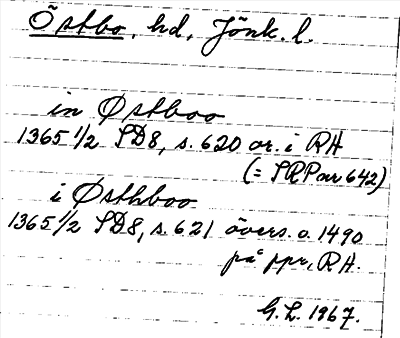 Östbo, hd, Jönk. l.
in Østboo
1365 1/2 SD8, s. 620 or. i RH
(= SRP nr 642)
i Østhboo
1365 1/2 SD8, s. 621 övers. o. 1490
på ppr, RH.
G. L. 1967.